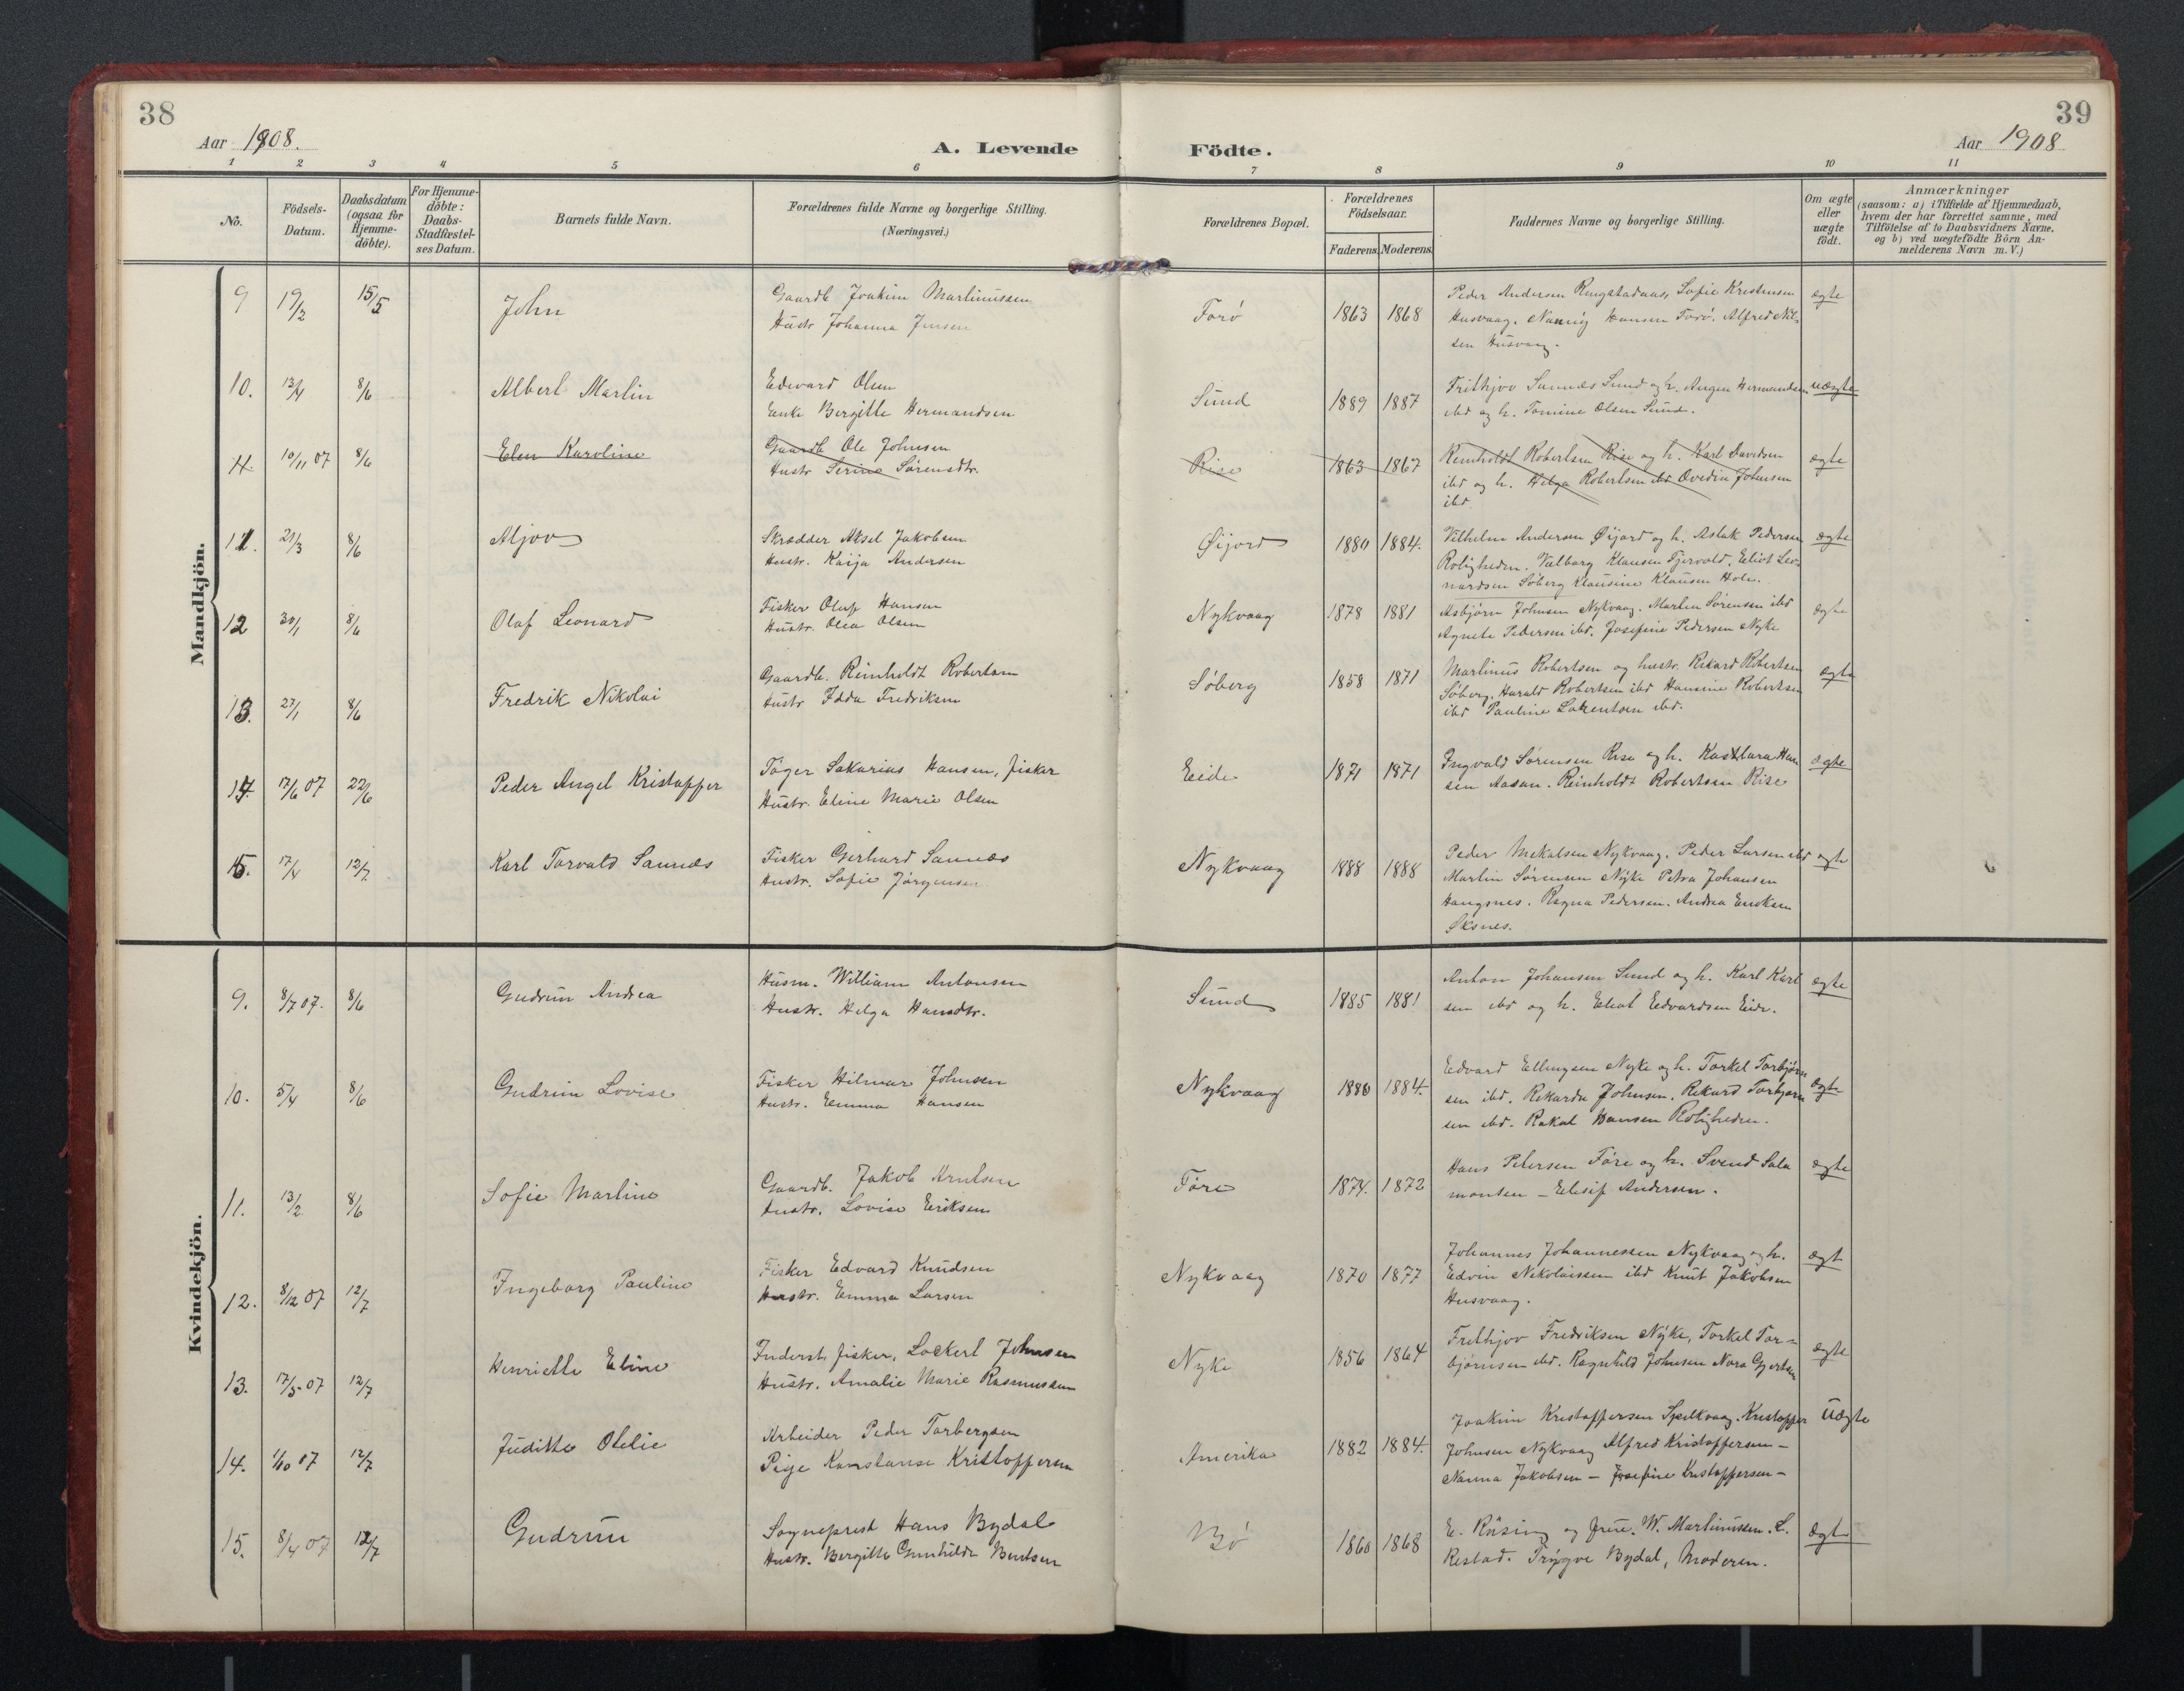 38
Aar 1908.
A. Levende
Födte.
39
Aar 1908
1 2 3 4 5 6 7 8 9 10 11
No.
Födsels-
Datum.
Daabsdatum
(ogsaa for
Hjemme-
döbte).
For Hjemme-
döbte:
Daabs-
Stadfæstel-
ses Datum.
Barnets fulde Navn.
Forældrenes fulde Navne og borgerlige Stilling.
(Næringsvei.)
Forældrenes Bopæl.
Forældrenes
Födselsaar.
Faderens. Moderens.
Faddernes Navne og borgerlige Stilling.
Om ægte
eller
uægte
födt.
Anmærkninger
(saasom: a) i Tilfælde af Hjemmedaab,
hvem der har forrettet samme, med
Tilföielse af to Daabsvidners Navne,
og b) ved uægtefödte Börn An-
melderens Navn m. V.)
Mandkjön.
9 19/2 15/5 John
Gaardb Joakim Martinussen
Hustr Johanna Jensen
Forö 1863 1868
Peder Andersen Ringstadaas, Sofie Kristensen
Husvaag. Hansen Forö. Alfred Nil-
sen Husvaag.
ægte
10. 13/4 8/6 Albert Martin
Edvard Olsen
Enke Bergitte Hermandsen
Sund 1889 1887
Frithjov Sannæs Sund og h. Angen Hermandsen
ibd og h. Tomine Olsen Sund.
uægte
11. 10/11 07 8/6 Elen Karoline
Gaardb Ole Johnsen
Hustr Serine Sörensdtr.
Rise 1863 1867
Reinholdt Robertsen Rise og h. Karl Davidsen
ibd og h. Helga Robertsen ibd Ovedia Johnsen
ibd.
ægte
11. 21/3 8/6 Aljov
Skrædder Aksel Jakobsen
Hustr. Kaija Andersen
Öijord 1880 1884.
Vilhelm Andersen Öijord og h. Aslak Pedersen
Roligheden. Valborg Klausen Fjærvold. Eliot Leo-
nardsen Söberg Klausine Klausen Hole.
ægte
12 30/1 8/6 Olaf Leonard
Fisker Oluf Hansen
Hustr. Olea Olsen
Nykvaag 1878 1881
Asbjörn Johnsen Nykvaag. Martin Sörensen ibd
Agnete Pedersen ibd. Josefine Pedersen Nyke
ægte
13. 27/1 8/6 Fredrik Nikolai
Gaardb. Reinholdt Robertsen
Hustr Idda Fredriksen
Söberg 1858 1871
Martinus Robertsen og hustr. Rikard Robertsen
Söberg. Harald Robertsen ibd Hansine Robertsen
ibd Pauline Lorentsen ibd.
ægte
14. 17/6 07 22/6 Peder Angel Kristoffer
Töger Sakarias Hansen, fisker
Hustr. Eline Marie Olsen
Eide 1871 1871
Ingvald Sörensen Rise og h. Kastara Han
sen Aasan. Reinholdt Robertsen Rise
ægte
15. 17/4 12/7 Karl Torvald Sannæs
Fisker Gerhard Sannæs
Hustr. Sofie Jörgensen
Nykvaag 1888 1888
Peder Mikalsen Nykvaag. Peder Larsen ibd
Martin Sörensen Nyke Petra Johansen
Haugsnes. Ragna Pedersen. Andrea Enoksen
Öksnes.
ægte
Kvindekjön.
9. 8/7 07. 8/6 Gudrun Andrea
Husm. William Antonsen
Hustr. Helga Hansdtr.
Sund 1885 1881
Anton Johansen Sund og h. Karl Karl
sen ibd og h. Eliot Edvardsen Eide.
ægte
10. 5/4 8/6 Gudrun Lovise
Fisker Hilmar Johnsen
Hustr. Emma Hansen
Nykvaag 1880 1884.
Edvard Ellingsen Nyke og h. Torkel Torbjörn
sen ibd. Rikarda Johnsen. Rikard Torbjörn
sen ibd. Rakal Hansen Roligheden.
ægte
11. 13/2 8/6 Sofie Martine
Gaardb. Jakob Arntsen
Hustr. Lovise Eriksen
Före 1874. 1872
Hans Petersen Före og h. Svend Salo
monsen — Elesif Andersen.
ægte
12. 8/12 07 12/7 Ingeborg Pauline
Fisker Edvard Knudsen
Hustr. Emma Larsen
Nykvaag 1870 1877
Johannes Johannessen Nykvaag og h.
Edvin Nikolaissen ibd Knut Jakobsen
Husvaag.
ægt
13. 17/5 07 12/7 Henriette Eline
Inderst, fisker, Lockert Johnsen
Hustr. Amalie Marie Rasmussen
Nyke 1856 1864
Frithjov Fredriksen Nyke, Torkel Tor-
björnsen ibd. Ragnhild Johnsen Nora Gjertsen
ægte
14. 1/10 07 12/7 Juditte Otelie
Arbeider Peder Torbergsen
Pige Konstanse Kristoffersen
Amerika 1882 1884.
Joakim Kristoffersen Spilkvaag. Kristoffer
Johnsen Nykvaag Alfred Kristoffersen —
Nanna Jakobsen — Josefine Kristoffersen —
Uægte
15. 8/4 07 12/7 Gudrun
Sogneprest Hans Bydal
Hustr. Bergitte Gunhilde Bentsen
Bö 1860 1868
E. Rüsing og frue. W. Martinussen. L.
Restad. Trygve Bydal, Moderen.
ægte